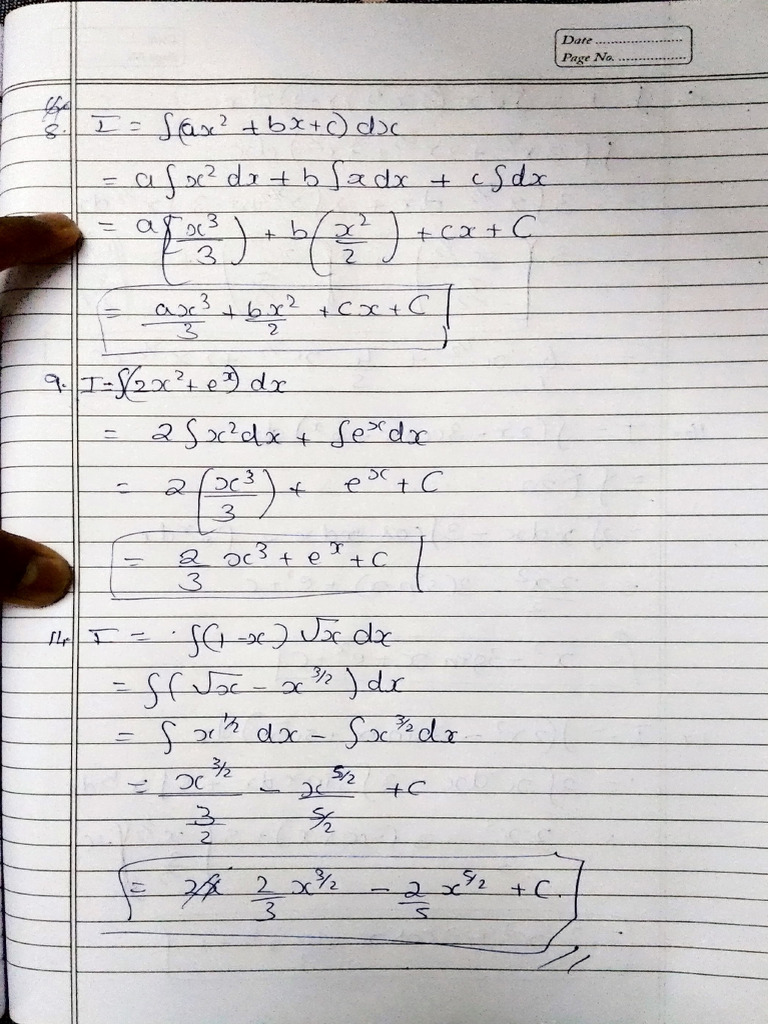 Date ..........................
Page No. ....................
8. I = ∫(ax² + bx + c) dx
= a∫x² dx + b∫x dx + c∫dx
= a(x³/3) + b(x²/2) + cx + C
= ax³/3 + bx²/2 + cx + C
9. I = ∫(2x² + eˣ) dx
= 2∫x² dx + ∫eˣ dx
= 2(x³/3) + eˣ + C
= 2/3 x³ + eˣ + C
14. I = ∫(1-x) √x dx
= ∫(√x - x^3/2) dx
= ∫x^1/2 dx - ∫x^3/2 dx
= x^3/2/(3/2) - x^5/2/(5/2) + C
= 2/3 x^3/2 - 2/5 x^5/2 + C.